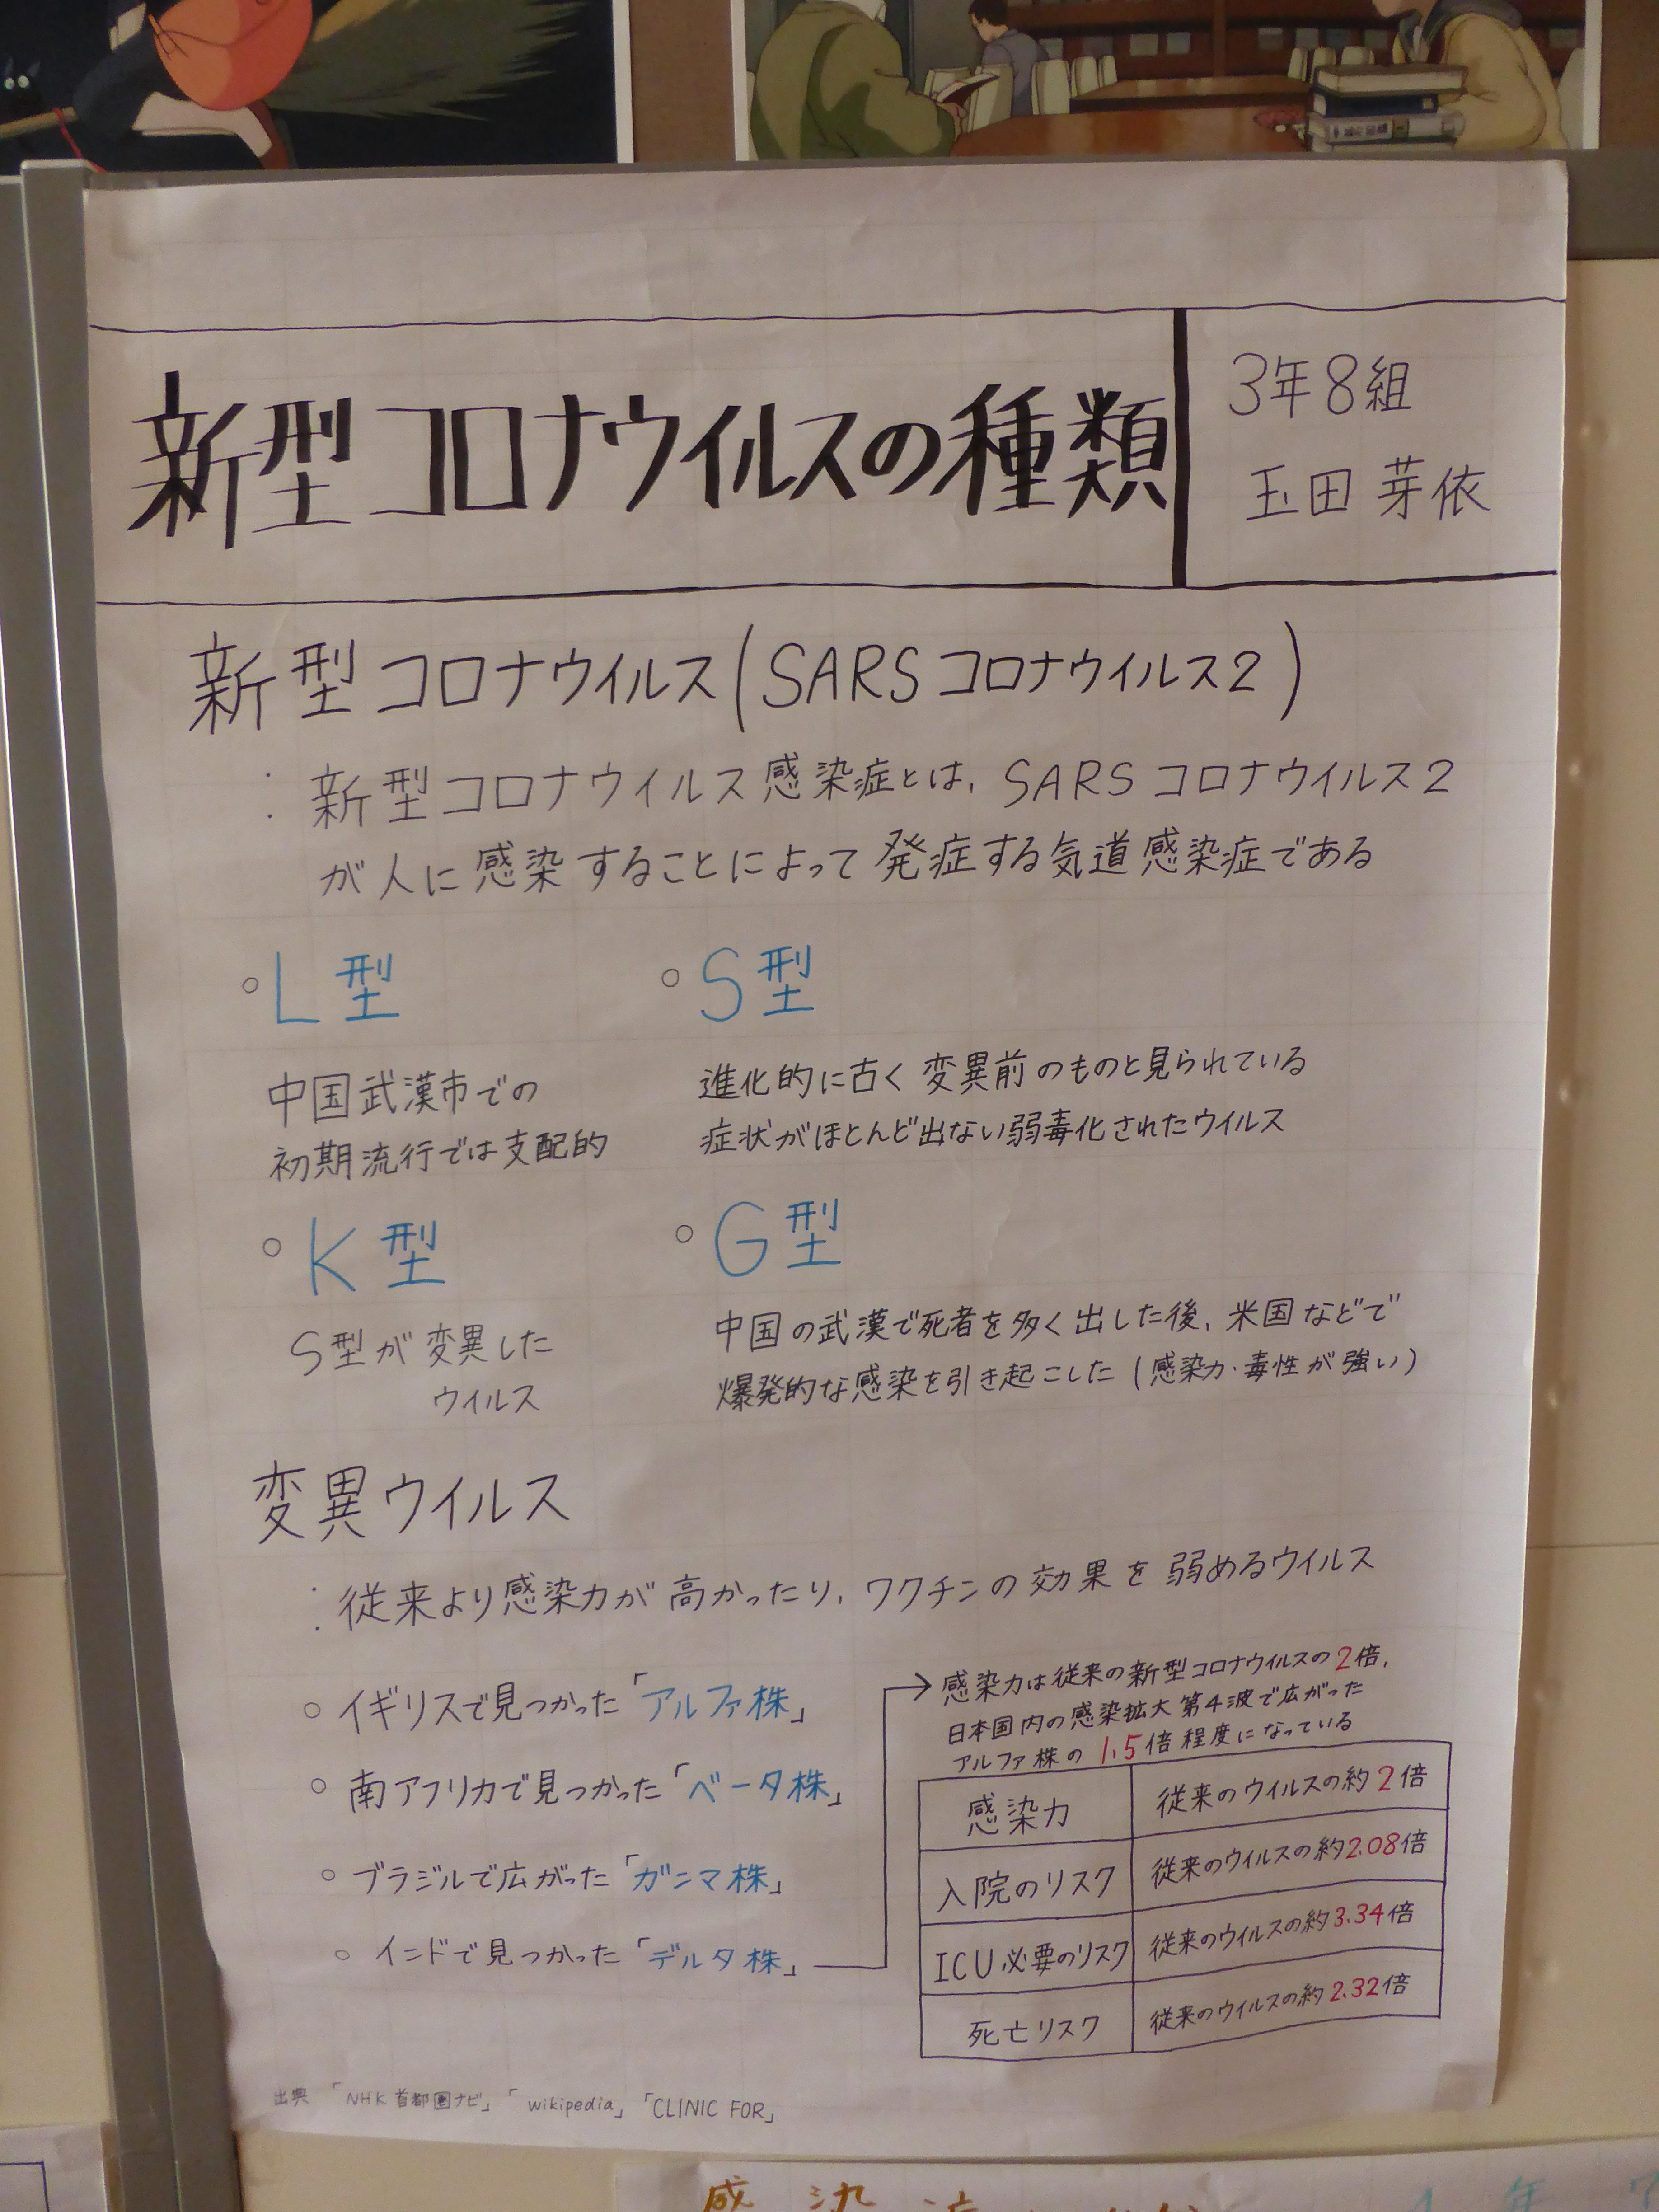 新型コロナウイルスの種類
3年8組
玉田 芽依
新型コロナウイルス(SARSコロナウイルス2)
:新型コロナウイルス感染症とは、SARSコロナウイルス2
が人に感染することによって発症する気道感染症である
○L型
中国武漢市での
初期流行では支配的
○S型
進化的に古く変異前のものと見られている
症状がほとんど出ない弱毒化されたウイルス
○K型
S型が変異した
ウイルス
○G型
中国の武漢で死者を多く出した後、米国などで
爆発的な感染を引き起こした(感染力・毒性が強い)
変異ウイルス
:従来より感染力が高かったり、ワクチンの効果を弱めるウイルス
○イギリスで見つかった「アルファ株」
○南アフリカで見つかった「ベータ株」
○ブラジルで広がった「ガンマ株」
○インドで見つかった「デルタ株」
→感染力は従来の新型コロナウイルスの2倍、
日本国内の感染拡大第4波で広がった
アルファ株の1.5倍程度になっている
感染力 従来のウイルスの約2倍
入院のリスク 従来のウイルスの約2.08倍
ICU必要のリスク 従来のウイルスの約3.34倍
死亡リスク 従来のウイルスの約2.32倍
出典 「NHK首都圏ナビ」「wikipedia」「CLINIC FOR」
感染